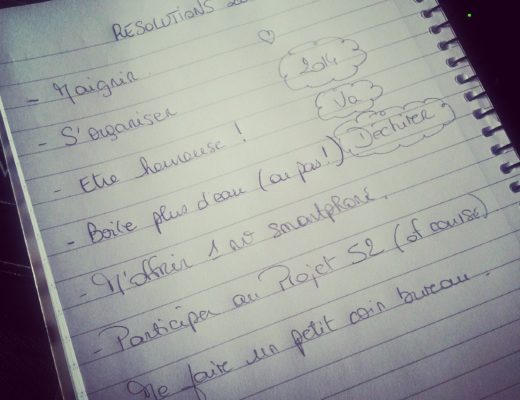 RESOLUTIONS
- Maigrir
- S'organiser
- Etre heureuse !
- Boire plus d'eau (ou pas!)
- M'offrir 1 nv smartphone.
- Participer au Projet 52 (of course)
Me faire un petit coin bureau.
2014
Va
Déchirer